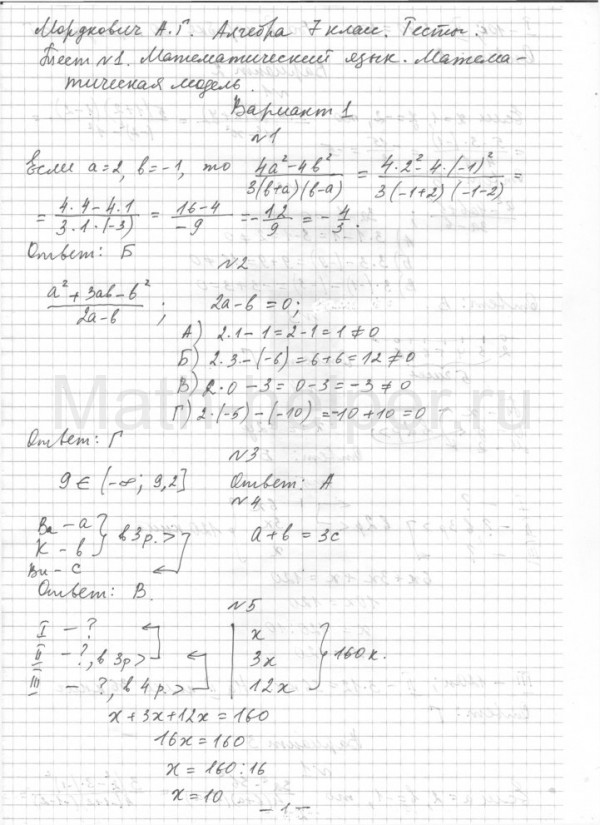 Мордкович А.Г. Алгебра 7 класс. Тесты.
Тест №1. Математический язык. Матема-
тическая модель.
Вариант 1
№1
Если a=2, b=-1, то (4a²-4b²)/(3(b+a)(b-a)) = (4·2²-4·(-1)²)/(3(-1+2)(-1-2)) =
= (4·4-4·1)/(3·1·(-3)) = (16-4)/(-9) = -12/9 = -4/3.
Ответ: Б
№2
(a²+3ab-b²)/(2a-b); 2a-b=0;
А) 2·1-1=2-1=1≠0
Б) 2·3-(-6)=6+6=12≠0
В) 2·0-3=0-3=-3≠0
Г) 2·(-5)-(-10)=-10+10=0
Ответ: Г
№3
9 ∈ (-∞; 9,2] Ответ: А
№4
Ва - a
К - b } в 3 р. > a+b=3c
Ви - c
Ответ: В.
№5
I - ? | x
II - ?, в 3 р > | 3x } 160 к.
III - ?, в 4 р. > | 12x
x+3x+12x=160
16x=160
x=160:16
x=10
-1-
MathHelper.ru